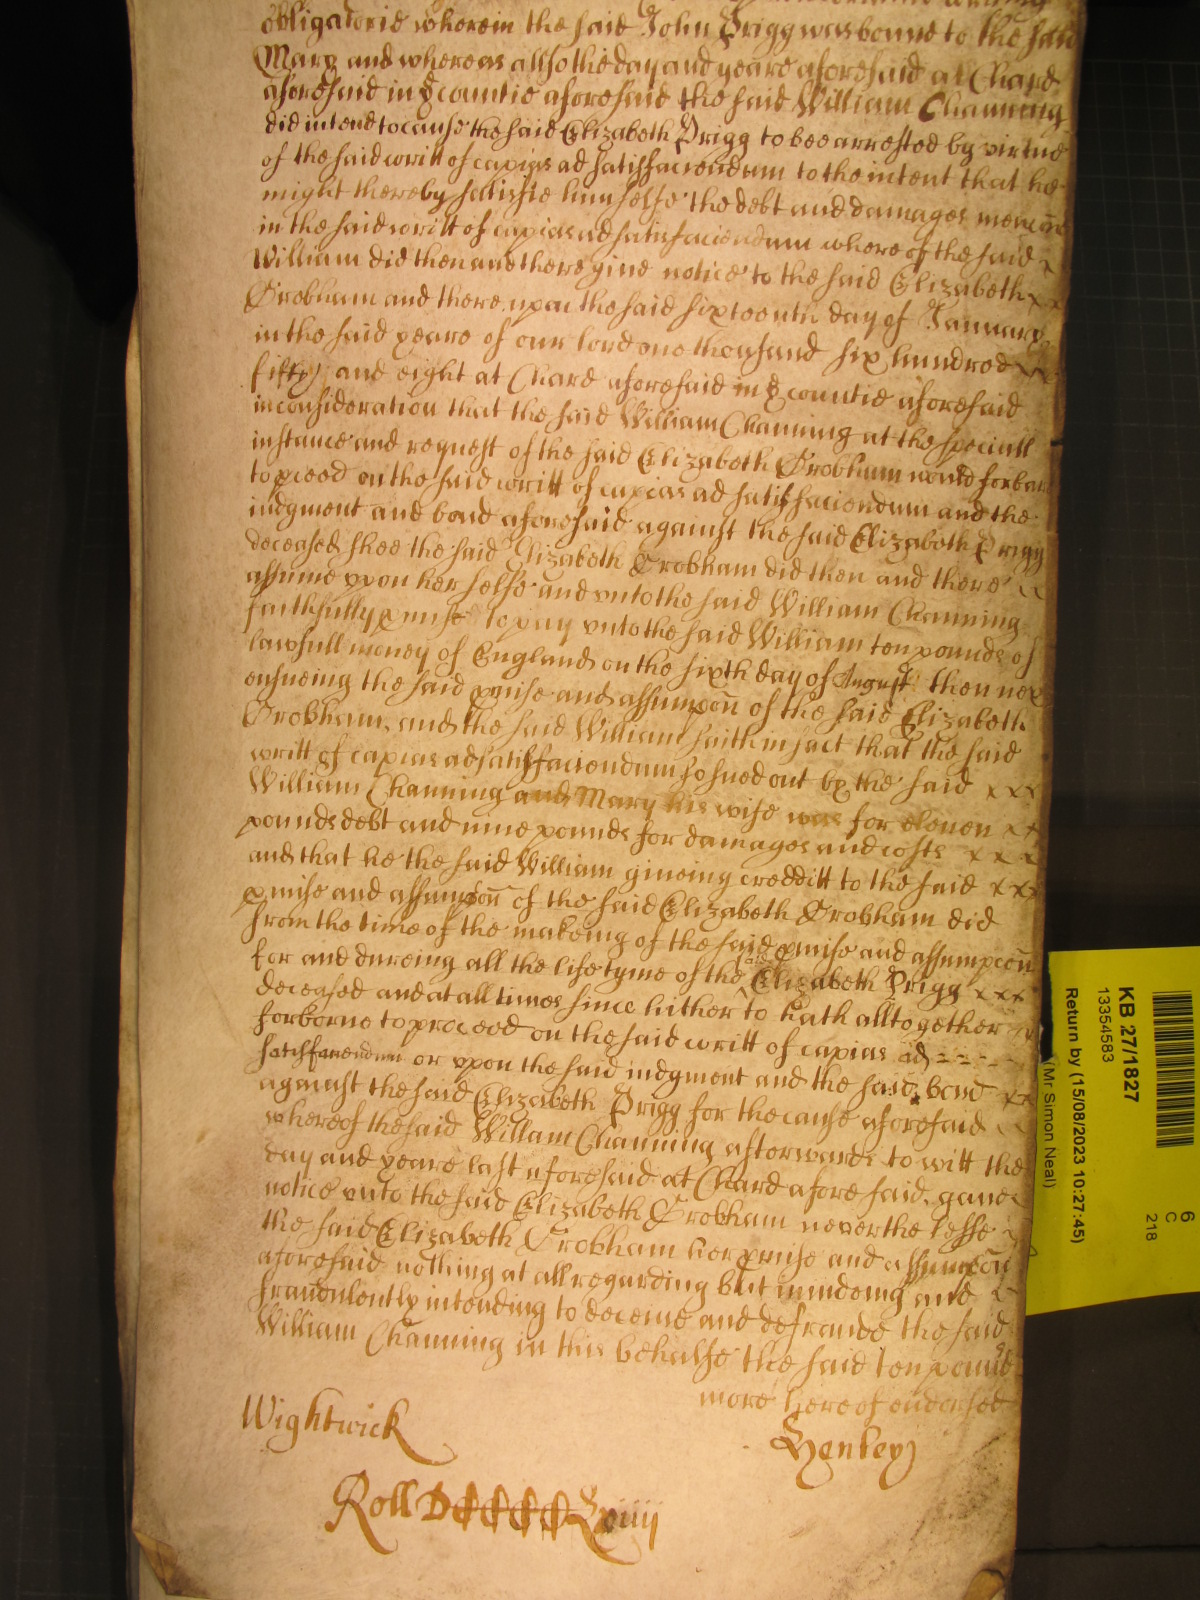 obligatorie wherein the said John Prigg was bound to the said
Mary and whereas allso the day and yeare aforesaid at Chard
aforesaid in ye countie aforesaid the said William Channing
did intend to cause the said Elizabeth Prigg to bee arrested by virtue
of the said writt of capias ad satisfaciendum to the intent that he
might thereby satisfie himselfe the debt and damages
in the said writt of capias ad satisfaciendum whereof the said
William did then and there give notice to the said Elizabeth xx
Brobham and thereupon the said sixteenth day of January
in the said yeare of our lord one thousand six hundred
fifty and eight at Chard aforesaid in ye countie aforesaid
in consideration that the said William Channing at the speciall
instance and request of the said Elizabeth Brobham would forbear
to pceed on the said writt of capias ad satisfaciendum and the
iudgment and bond aforesaid against the said Elizabeth Prigg
deceased shee the said Elizabeth Brobham did then and there
assume upon her selfe and unto the said William Channing
faithfully pmise to pay unto the said William ten pounds of
lawfull money of England on the sixth day of August then next
ensueing the said pmise and assumpcon of the said Elizabeth
Brobham, and the said William saith in fact that the said
writt of capias ad satisfaciendum so sued out by the said xxx
William Channing and Mary his wife was for eleven xx
pounds debt and nine pounds for damages and costs x x x
and that he the said William giveing creditt to the said xxx
pmise and assumpcon of the said Elizabeth Brobham did
from the time of the makeing of the said pmise and assumpcon
for and dureing all the life tyme of the said Elizabeth Prigg xxx
deceased and at all times since hitherto hath alltogether
forborne to proceed on the said writt of capias ad
satisfaciendum or upon the said iudgment and the said bond xx
against the said Elizabeth Prigg for the cause aforesaid
whereof the said William Channing afterwards to witt the
day and yeare last aforesaid at Chard aforesaid, gave
notice unto the said Elizabeth Brobham neverthelesse
the said Elizabeth Brobham her pmise and assumpcon
aforesaid nothing at all regarding but mindeing and
fraudulently intending to deceive and defraude the said
William Channing in this behalfe the said ten pounds
more hereof endorsed
Wightwick
Henley
Roll DCCCCLxiiii
KB 27/1827
13354583
Return by (15/08/2023 10:27:45)
(Mr Simon Neal)
6
C
218